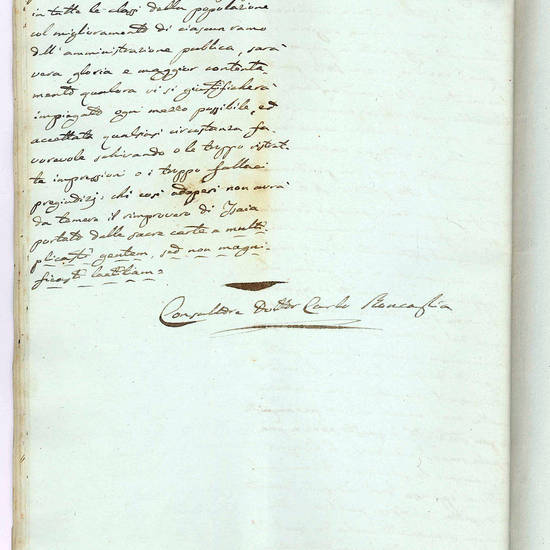 in tutte le classi della popolazione
col miglioramento di ciascun ramo
dell'amministrazione publica, sarà
vera gloria e maggior contenta-
mento qualora vi si giustificherà
impiegato ogni mezzo possibile, ed
accettata qualsiasi circostanza fa-
vorevole schivando o le troppo ristret-
te impressioni o i troppo fallaci
pregiudizj; chi così adoperi non avrà
da temere il rimprovero di Isaia
portato dalle sacre carte a multi-
plicasti gentem, sed non magni-
ficasti laetitiam =
Consultore Dottor Carlo Roncaglia